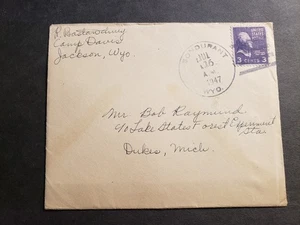 Camp Davis
Jackson, Wyo.
BONDURANT
JUL
A.M.
1947
WYO.
3 CENTS 3
Mr Bob Raymond
c/o Lake States Forest Experiment
Sta
Dukes, Mich.